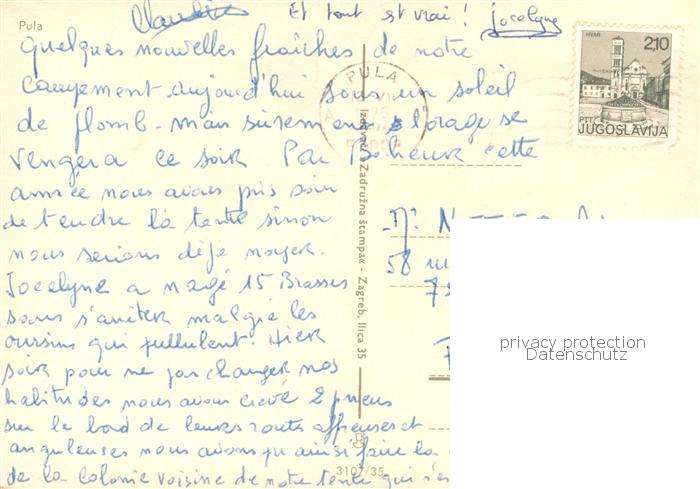 Pula
Claudine
Et tout est vrai ! Jocelyne
Quelques nouvelles fraîches de notre
campement aujourd'hui sous un soleil
de plomb - mais surement l'orage se
vengera ce soir Par bonheur cette
année nous avons pris soin
de tendre la tente sinon
nous serions déjà noyer.
Jocelyne a nagé 15 Brasses
sans s'arrêter malgré les
oursins qui pullulent. Hier
soir pour ne pas changer nos
habitudes nous avons crevé 2 pneus
sur le bord de leurs routes affreuses et
anguleuses nous avons pu ainsi faire la
de la Colonie voisine de notre tente qui s'e
PULA
HVAR
2,10
PTT
JUGOSLAVIJA
Izdavač: »Zadružna štampa« - Zagreb, Ilica 35
3107/35
58
privacy protection
Datenschutz